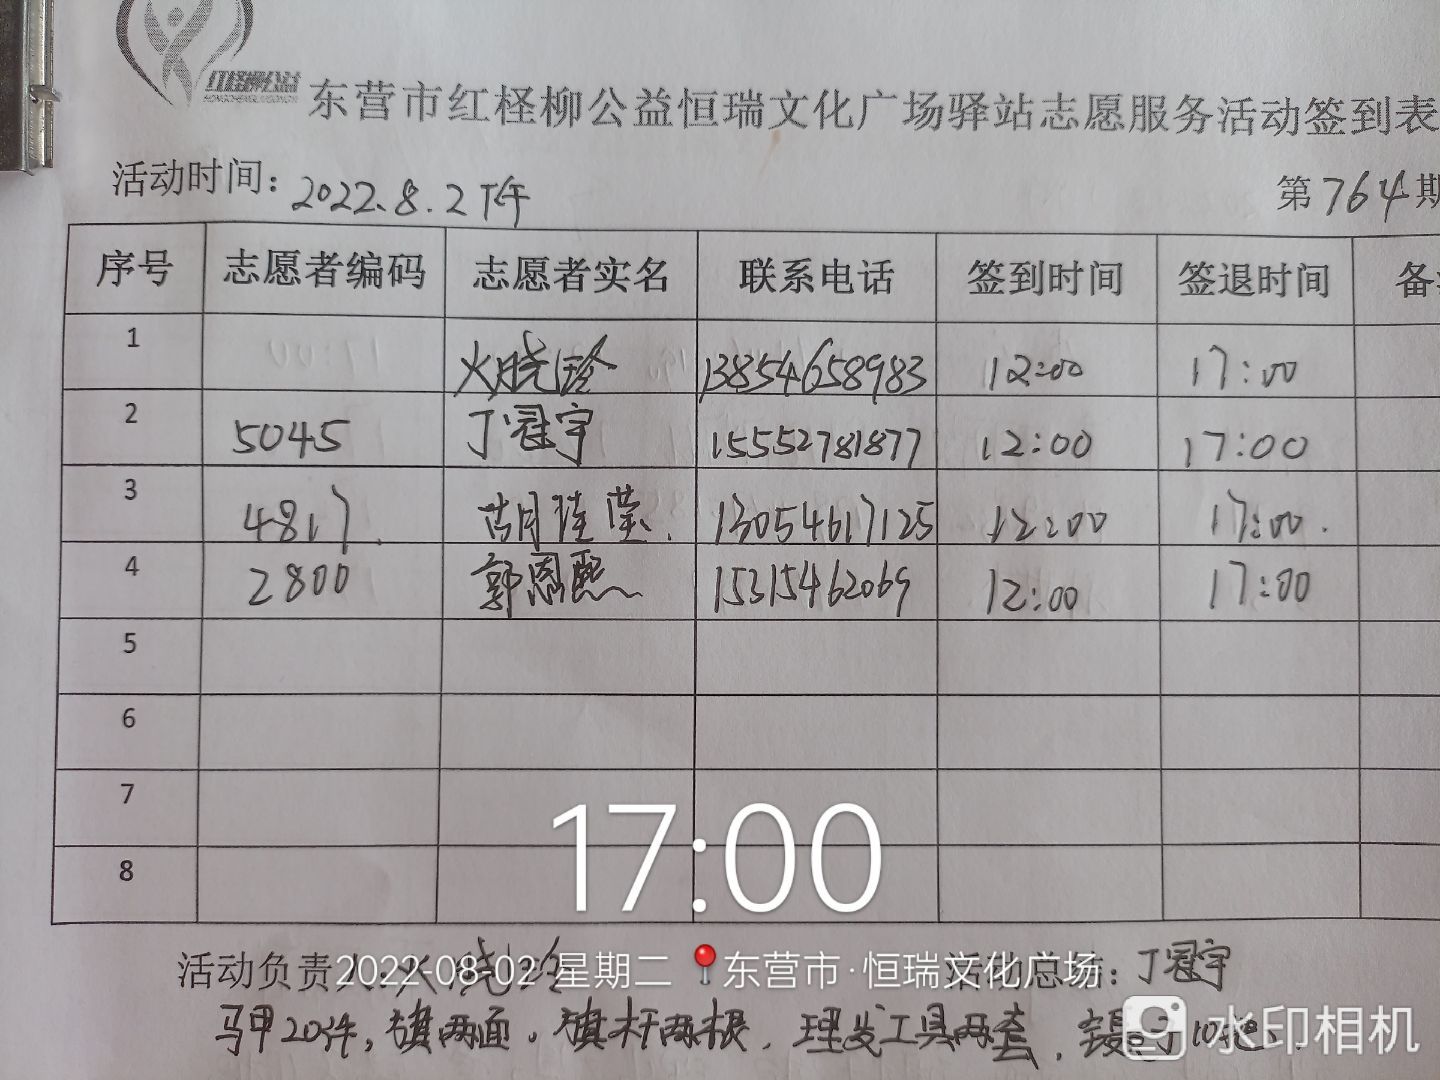 红柽柳公益
东营市红柽柳公益恒瑞文化广场驿站志愿服务活动签到表
活动时间：2022.8.2下午 第764期
序号 志愿者编码 志愿者实名 联系电话 签到时间 签退时间 备
1 火晓玲 13854658983 12:00 17:00
2 5045 丁冠宇 15552781877 12:00 17:00
3 4817. 胡佳莹. 13054617125 12:00 17:00.
4 2800 郭恩熙 15315462069 12:00 17:00
5
6
7
8
17:00
活动负责人：火晓玲 活动总结：丁冠宇
2022-08-02 星期二 东营市·恒瑞文化广场
马甲20件，旗两面，旗杆两根，理发工具两套，
水印相机